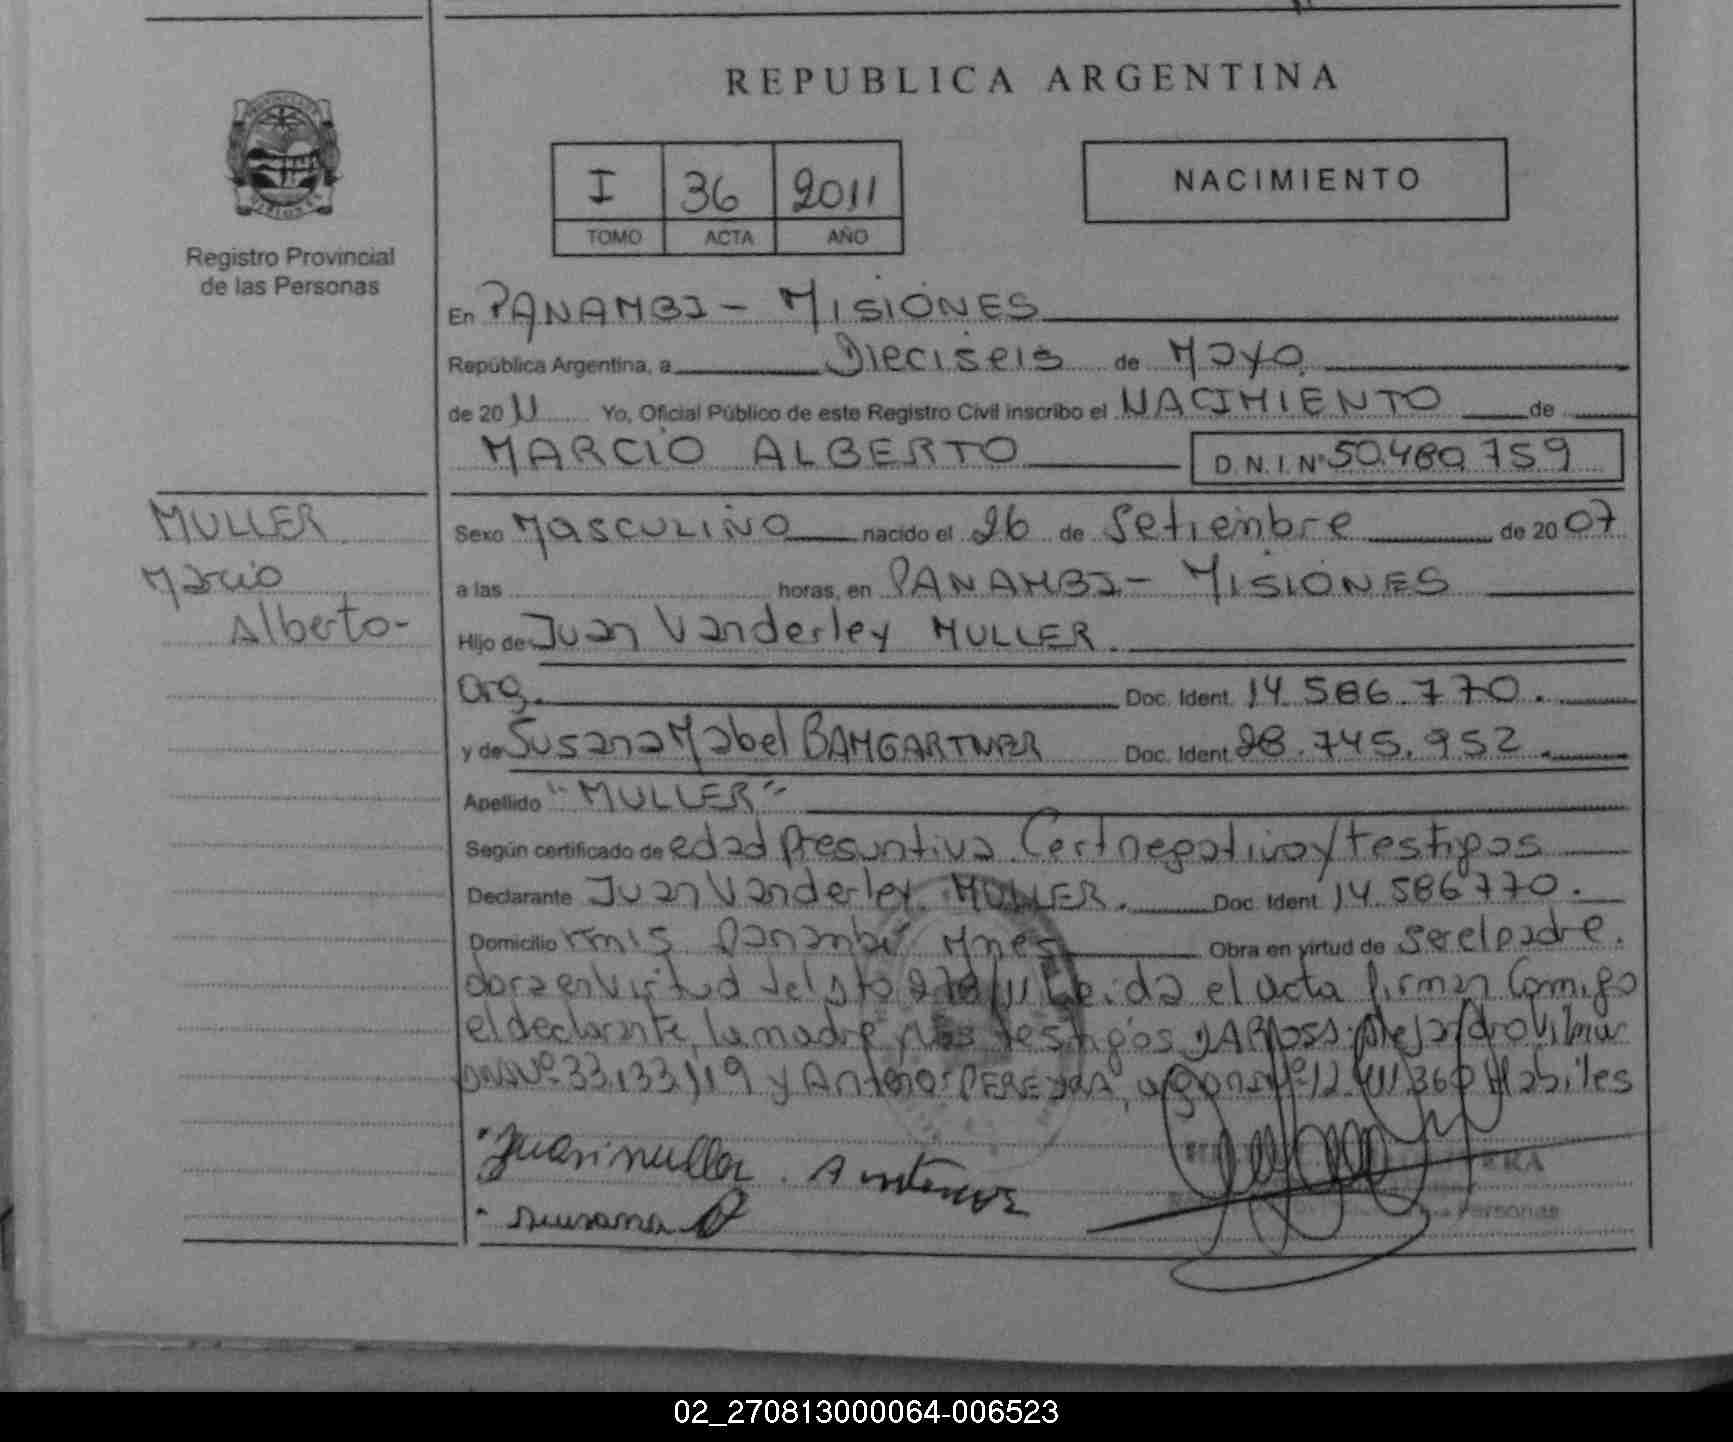 REPUBLICA ARGENTINA
I 36 2011
TOMO ACTA AÑO
NACIMIENTO
Registro Provincial
de las Personas
En PANAMBI - MISIONES
República Argentina, a Dieciseis de Mayo
de 20 11 Yo, Oficial Público de este Registro Civil inscribo el NACIMIENTO de
MARCIO ALBERTO D.N.I. Nº 50.480.759
MULLER
Marcio
Alberto-
Sexo MASCULINO nacido el 26 de Setiembre de 20 07
a las horas, en PANAMBI - MISIONES
Hijo de Juan Vanderley MULLER.
Arg. Doc. Ident. 14.586.770.
y de Susana Mabel BAMGARTNER Doc. Ident. 28.745.952.
Apellido "MULLER"
Según certificado de edad presuntiva Cert negativo y testigos
Declarante Juan Vanderley MULLER. Doc. Ident. 14.586770.
Domicilio Panambi Mnes Obra en virtud de ser el padre.
en virtud del Leida el acta firman Comigo
el declarante, la madre testigos
33.133.119 y PEREYRA, Habiles
Juan muller
Personas
02_270813000064-006523